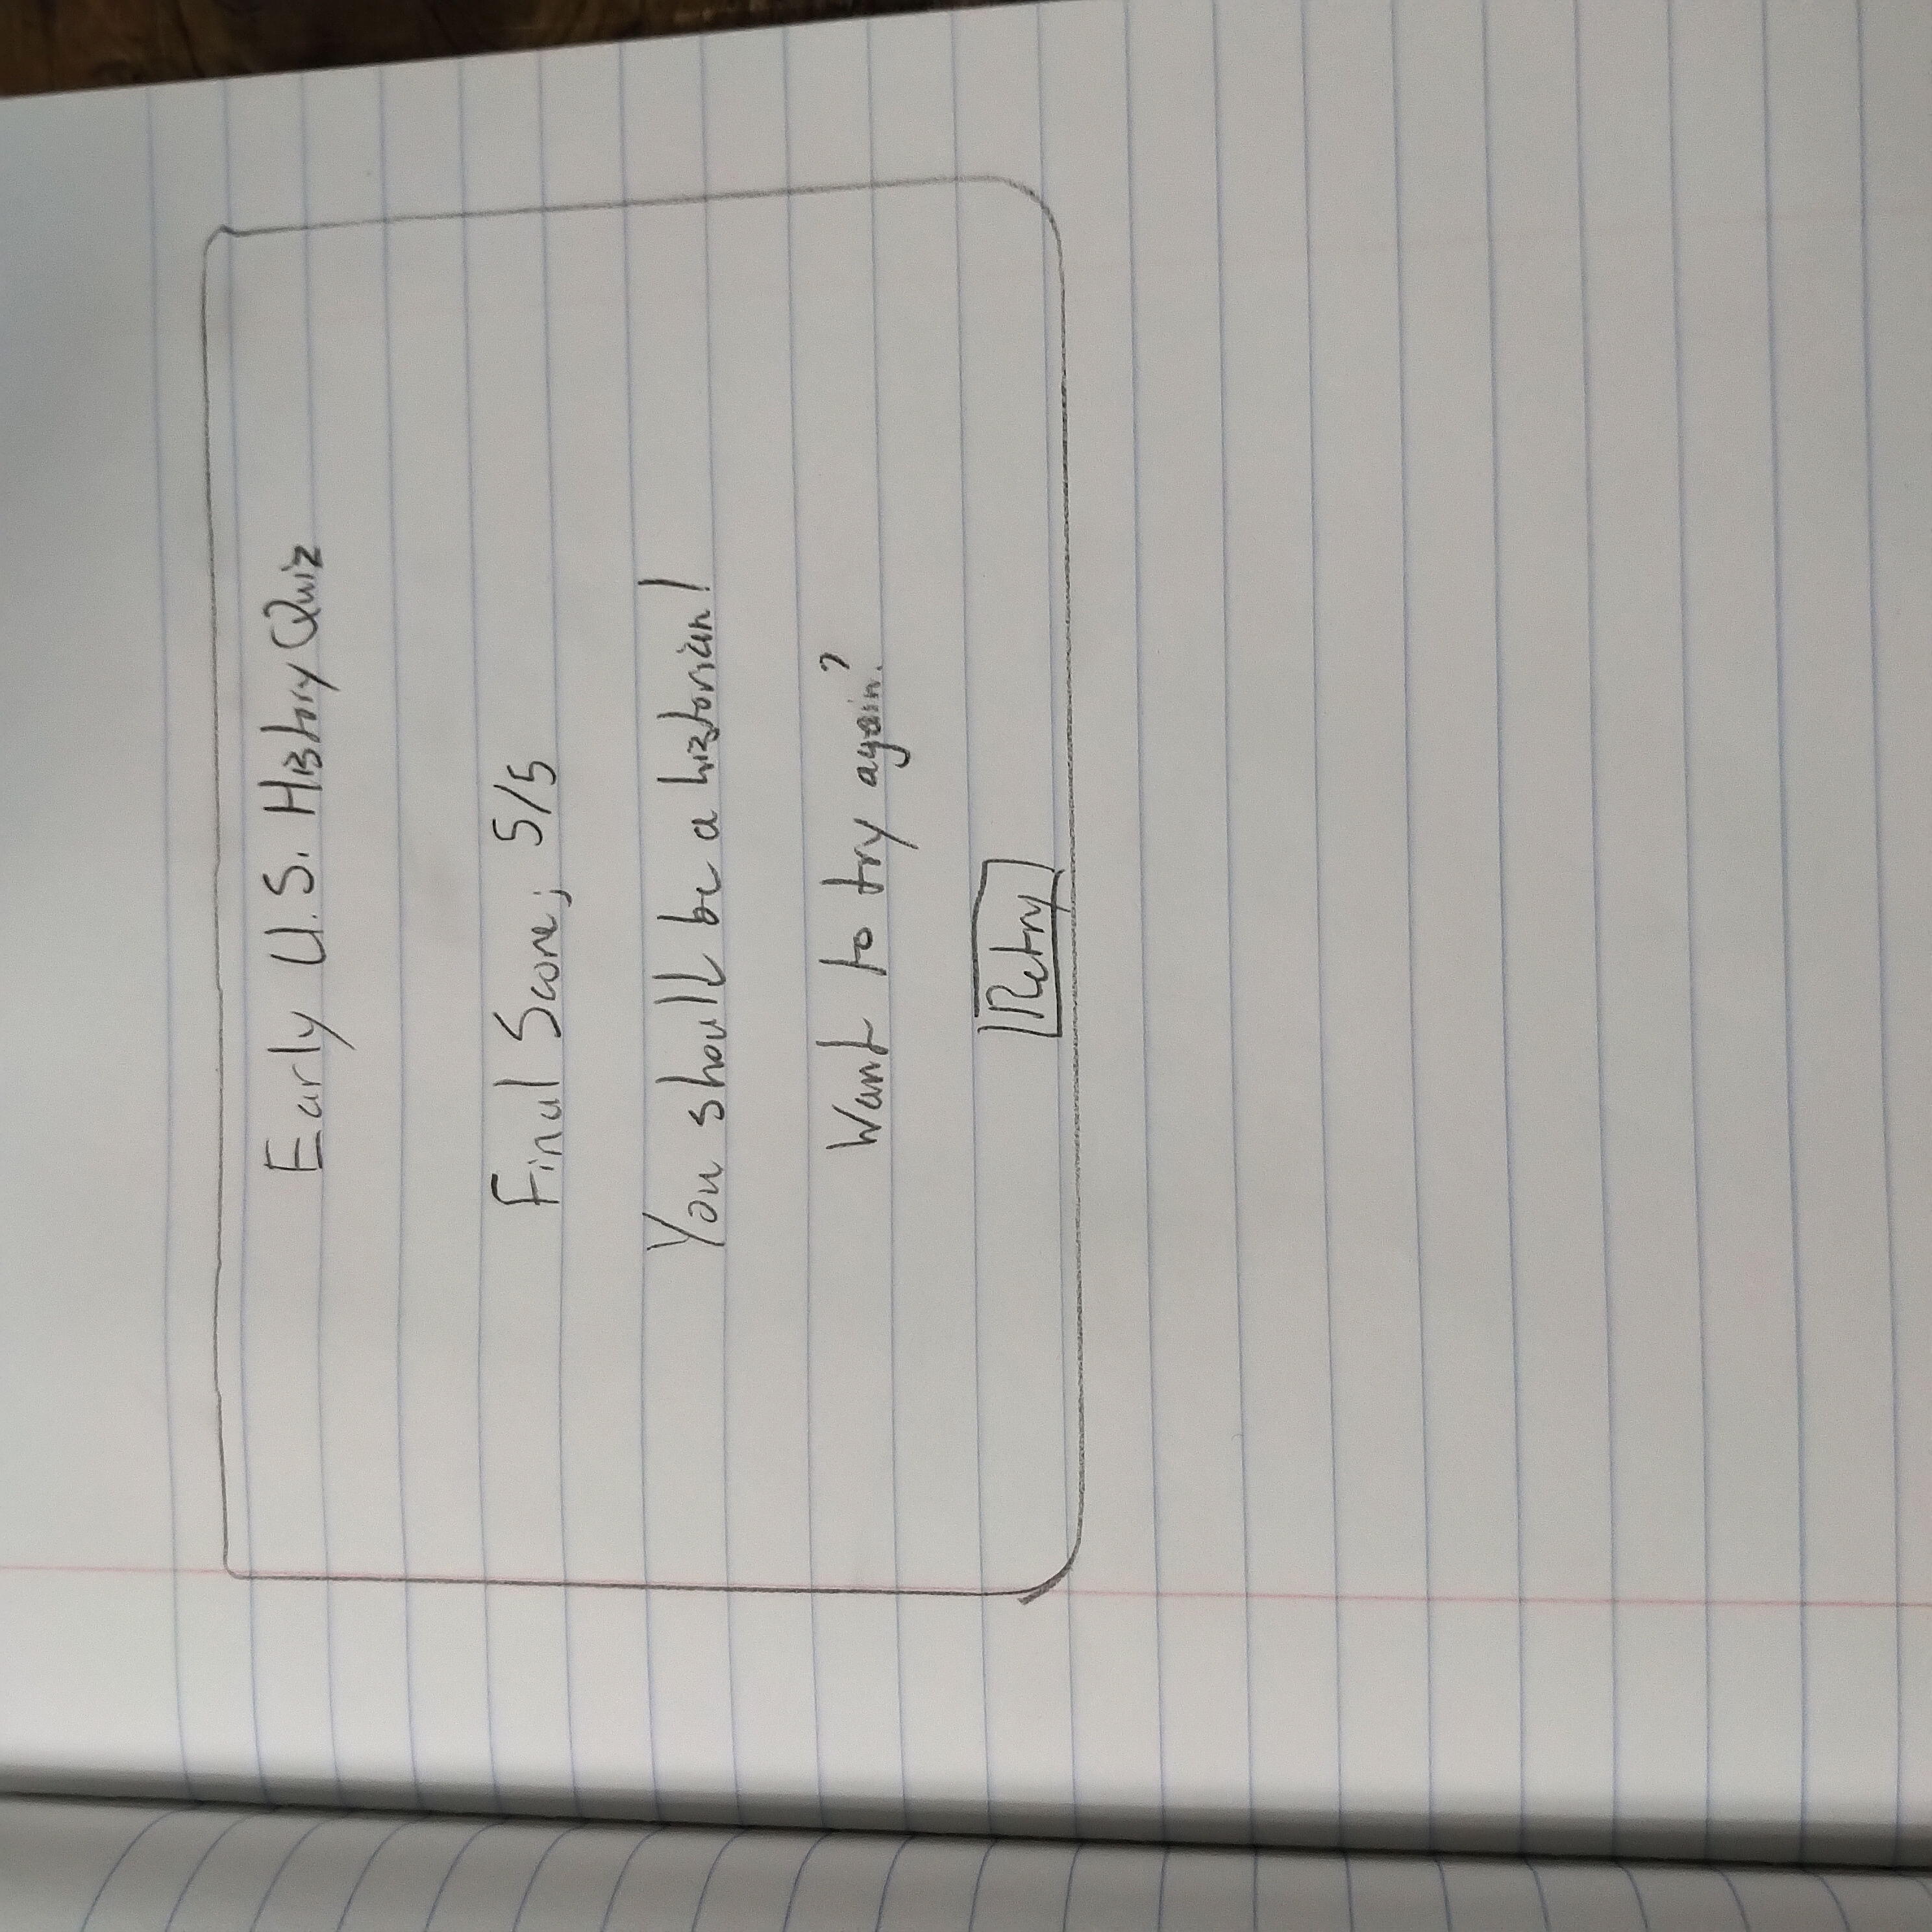 Early U.S. History Quiz
Final Score; 5/5
You should be a historian!
Want to try again?
Retry